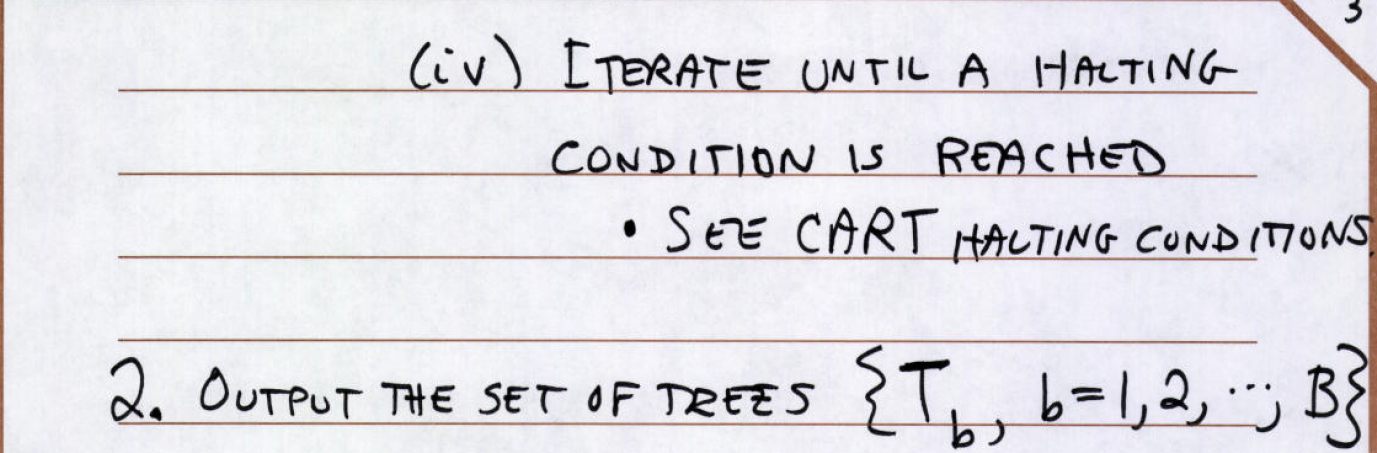 3
(iv) ITERATE UNTIL A HALTING
CONDITION IS REACHED
• SEE CART HALTING CONDITIONS.
2. OUTPUT THE SET OF TREES {T_b, b=1,2,..., B}